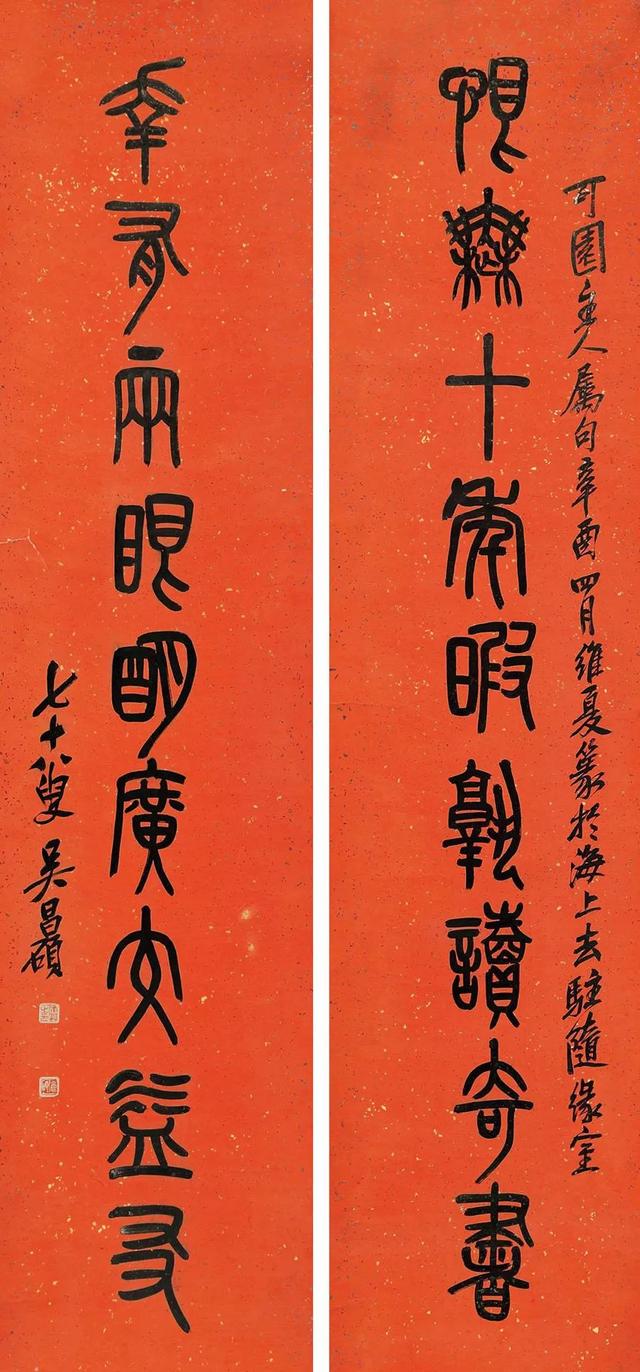 恨無十年暇孰讀奇書
可園主人屬句辛酉四月維夏篆於海上去駐隨緣室
幸有兩眼明廣交益友
七十八叟吳昌碩